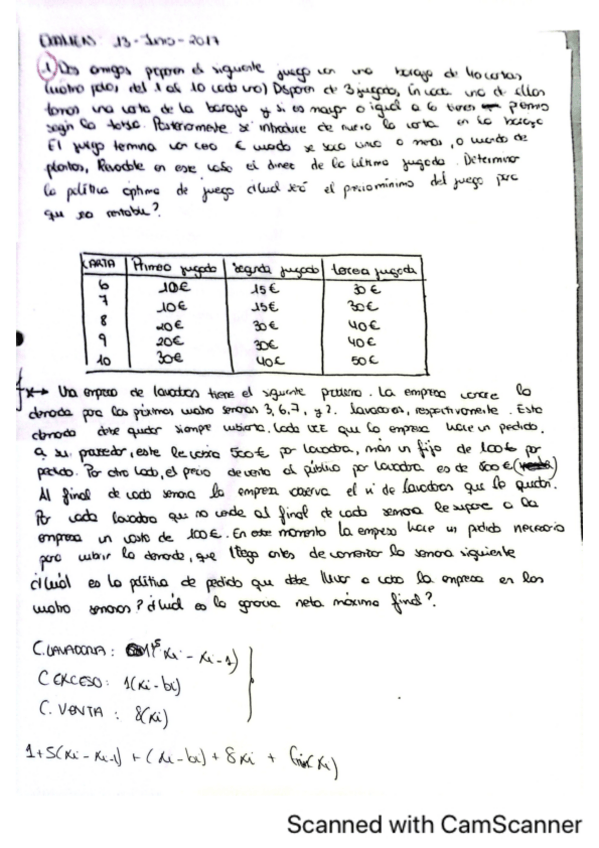 EXAMENES 13-Junio-2017
1) Dos amigos proponen el siguiente juego con una baraja de 40 cartas
(cuatro palos, del 1 al 10 cada uno) Disponen de 3 jugadas, En cada una de ellas
toman una carta de la baraja y si es mayor o igual a 6 tienen premio
según la tabla. Posteriormente se introduce de nuevo la carta en la baraja
El juego termina con cero € cuando se saca una o menos, o cuando de
plantas, en este caso el dinero de la última jugada. Determinar
la política óptima de juego ¿Cuál será el precio mínimo del juego para
que sea rentable?
CARTA Primera jugada Segunda jugada tercera jugada
6 10€ 15€ 30€
7 10€ 15€ 30€
8 20€ 30€ 40€
9 20€ 30€ 40€
10 30€ 40€ 50€
Una empresa de lavadoras tiene el siguiente problema. La empresa conoce la
demanda para las próximas cuatro semanas 3, 6, 7, y 2. lavadoras, respectivamente. Esta
demanda debe quedar siempre cubierta. Cada vez que la empresa hace un pedido.
a su proveedor, este le cobra 500€ por lavadora, más un fijo de 100€ por
pedido. Por otro lado, el precio de venta al público por lavadora es de 800€
Al final de cada semana la empresa observa el nº de lavadoras que le quedan.
Por cada lavadora que no vende al final de cada semana le supone a la
empresa un costo de 100€. En este momento la empresa hace un pedido necesario
para cubrir la demanda, que llega antes de comenzar la semana siguiente
¿Cuál es la política de pedido que debe llevar a cabo la empresa en las
cuatro semanas? ¿Cuál es la ganancia neta máxima final?
C. LAVADORA: xi - xi-1)
C EXCESO: 1(xi-bi)
C. VENTA : 8(xi)
1+5(xi-xi-1) + (xi-bi) + 8xi +
Scanned with CamScanner